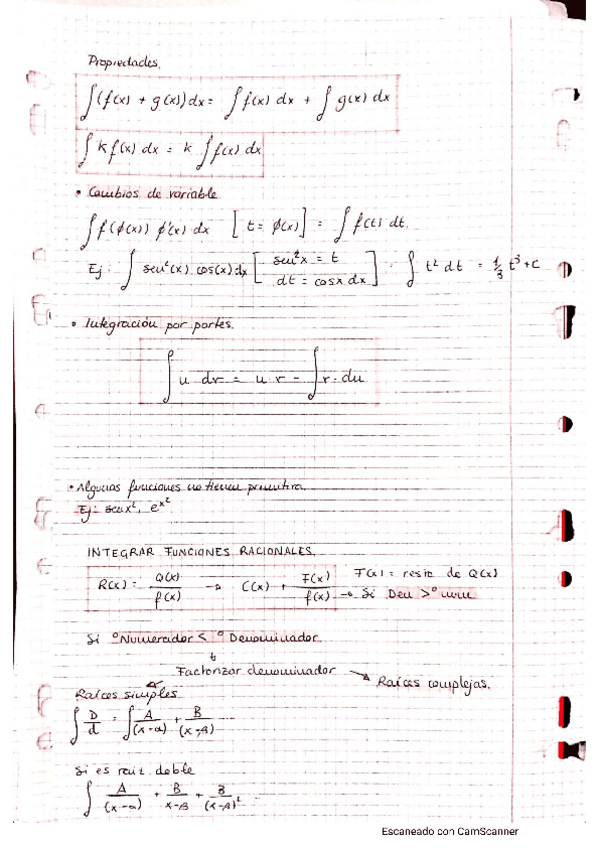 Propiedades.
∫(f(x) + g(x))dx = ∫f(x) dx + ∫ g(x) dx
∫ k f(x) dx = k ∫f(x) dx
• Cambios de variable
∫ f(ϕ(x)) ϕ'(x) dx [t = ϕ(x)] = ∫ f(t) dt.
Ej: ∫ sen²(x) cos(x)dx [sen²x = t
dt = cosx dx] = ∫ t² dt = 1/3 t³ + C
• Integración por partes.
∫ u dv = u v - ∫ v · du
• Algunas funciones no tienen primitiva.
Ej: senx², e^x²
INTEGRAR FUNCIONES RACIONALES.
R(x) = Q(x)/f(x) → C(x) + F(x)/f(x) F(x) = resto de Q(x)
→ Si Den >º num
Si ºNumerador < º Denominador.
↓
Factorizar denominador → Raíces complejas.
Raíces simples
∫ D/d = ∫ A/(x-α) + B/(x-β)
Si es raíz doble
∫ A/(x-α) + B/x-β + B/(x-β)²
Escaneado con CamScanner